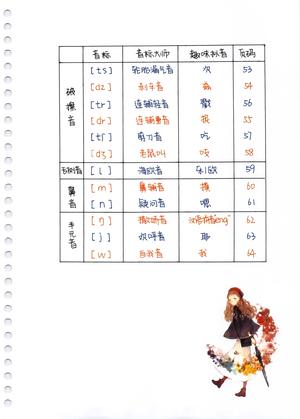 音标 音标大师 趣味拟音 页码
破擦音
[ts] 轮胎漏气音 次 53
[dz] 刹车音 54
[tr] 连辅轻音 戳 56
[dr] 连辅重音 捉 55
[tʃ] 剪刀音 吃 57
[dʒ] 老鼠叫 吱 58
[l] 海欧音 59
鼻音
[m] 鼻辅音 摸 60
[n] 疑问音 嗯 61
半元音
[ŋ] 撒娇音 62
[j] 欢呼音 耶 63
[w] 自我音 我 64